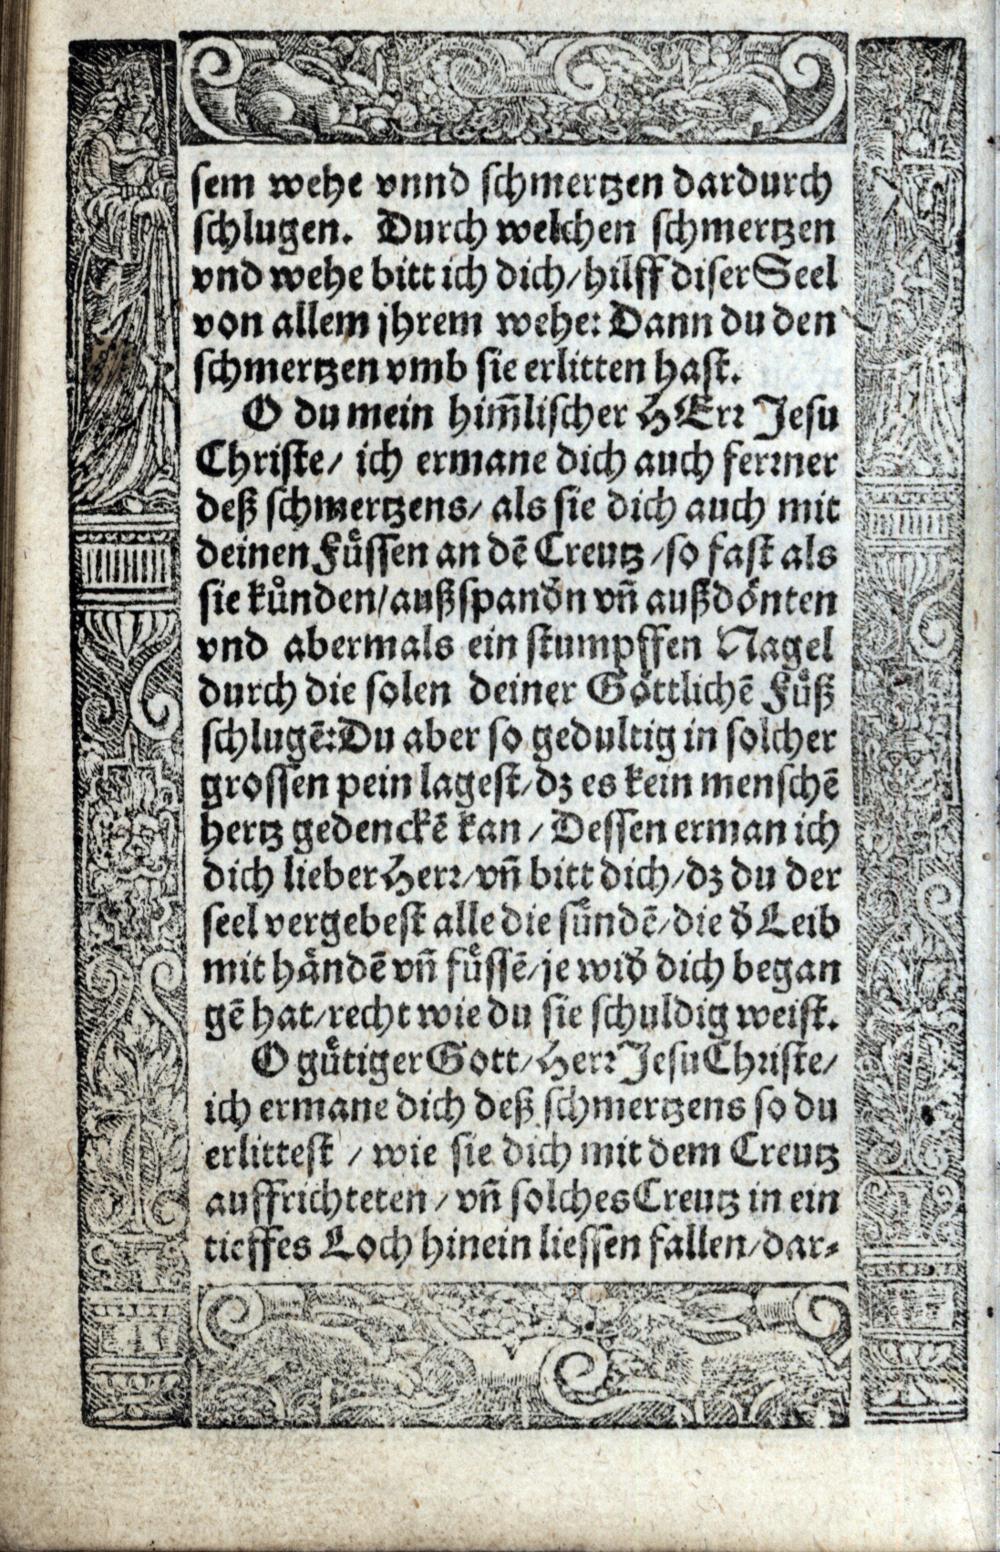 sem wehe vnnd schmertzen dardurch
schlugen. Durch welchen schmertzen
vnd wehe bitt ich dich/hilff diser Seel
von allem jhrem wehe: Dann du den
schmertzen vmb sie erlitten hast.
O du mein him̃lischer HErꝛ Jesu
Christe/ ich ermane dich auch ferꝛner
deß schmertzens/ als sie dich auch mit
deinen Fuͤssen an dē Creutz/so fast als
sie kuͤnden/außspandn̄ vñ außdoͤnten
vnd abermals ein stumpffen Nagel
durch die solen deiner Goͤttlichē Fuͤß
schlugē: Du aber so gedultig in solcher
grossen pein lagest/dz es kein menschē
hertz gedenckē kan/ Dessen erman ich
dich lieber Herꝛ/vñ bitt dich/dz du der
seel vergebest alle die suͤndē/die d̄ Leib
mit haͤndē vñ fuͤssē/je wid̄ dich began
gē hat/recht wie du sie schuldig weist.
O guͤtiger Gott/Herꝛ Jesu Christe/
ich ermane dich deß schmertzens so du
erlittest / wie sie dich mit dem Creutz
auffrichteten/ vñ solches Creutz in ein
tieffes Loch hinein liessen fallen/dar⸗